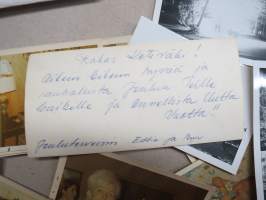 Rakas Setiväki!
Oikein Oikein hyvää ja
rauhallista Joulua Teille
kaikille ja Onnellista Uutta
Vuotta"
Joulutervisin ja